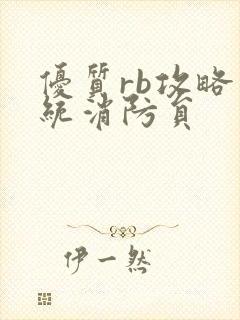 優質rb攻略
統消防員
伊一然